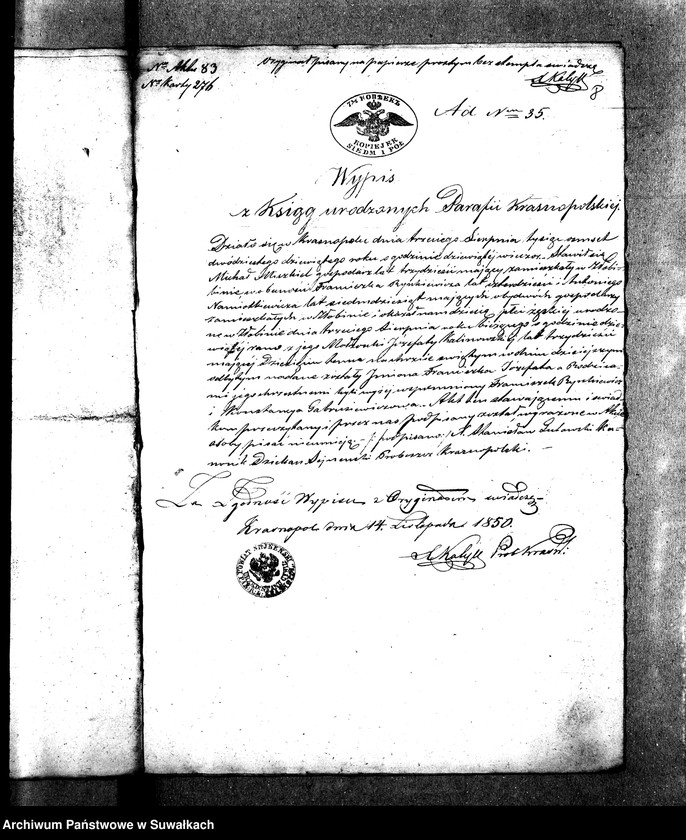 Nr. Aktu 83
Nr. Karty 276
Oryginał pisany na papierze prostym bez stempla świadczę
8
7½ КОПѢЕКЪ
KOPIEJEK
SIEDM I PÓŁ
Ad Nrum 35.
Wypis
z Księg urodzonych Parafii Krasnopolskiej.
Działo się w Krasnopolu dnia trzeciego Sierpnia tysiąc ośmset
dwódziestego dziewiątego roku o godzinie dziewiątej wieczor. Stawił się
Michał gospodarz lat trzydzieści mający, zamieszkały w
binie w obecności Franciszka Rynkiewicza lat czterdzieści i Antoniego
Namiotkiewicza lat siedmdziesiąt mających obydwóch gospodarzy
zamieszkałych w Żłobinie i okazał nam dziecię płci żeńskiej urodzo
ne w Żłobinie dnia trzeciego Sierpnia roku bieżącego o godzinie dzie
wiątej rano z jego Małżonki Jozefaty Kalinowskiej lat trzydzieści
mającej Dziecięciu temu na chrzcie świętym w dniu dzisiejszym
odbytym nadane zostały Imiona Franciszka Jozefata a Rodzica
mi jego chrzestnemi byli wyżej wspomniony Franciszek Rynkiewicz
i Konstancya Gabrusiewiczowa. Akt ten stawającemu i świad
kom przeczytany i przez nas podpisany został wyrażone w Akcie
osoby pisać nieumieją /: podpisano :/ X. Stanisław Ka
nonik Dziekan Sejneński Proboszcz Krasnopolski.
Za Zgodność Wypisu z Oryginałem świadczę
Krasnopol dnia 14. Listopada 1850.
Prob Krasn: